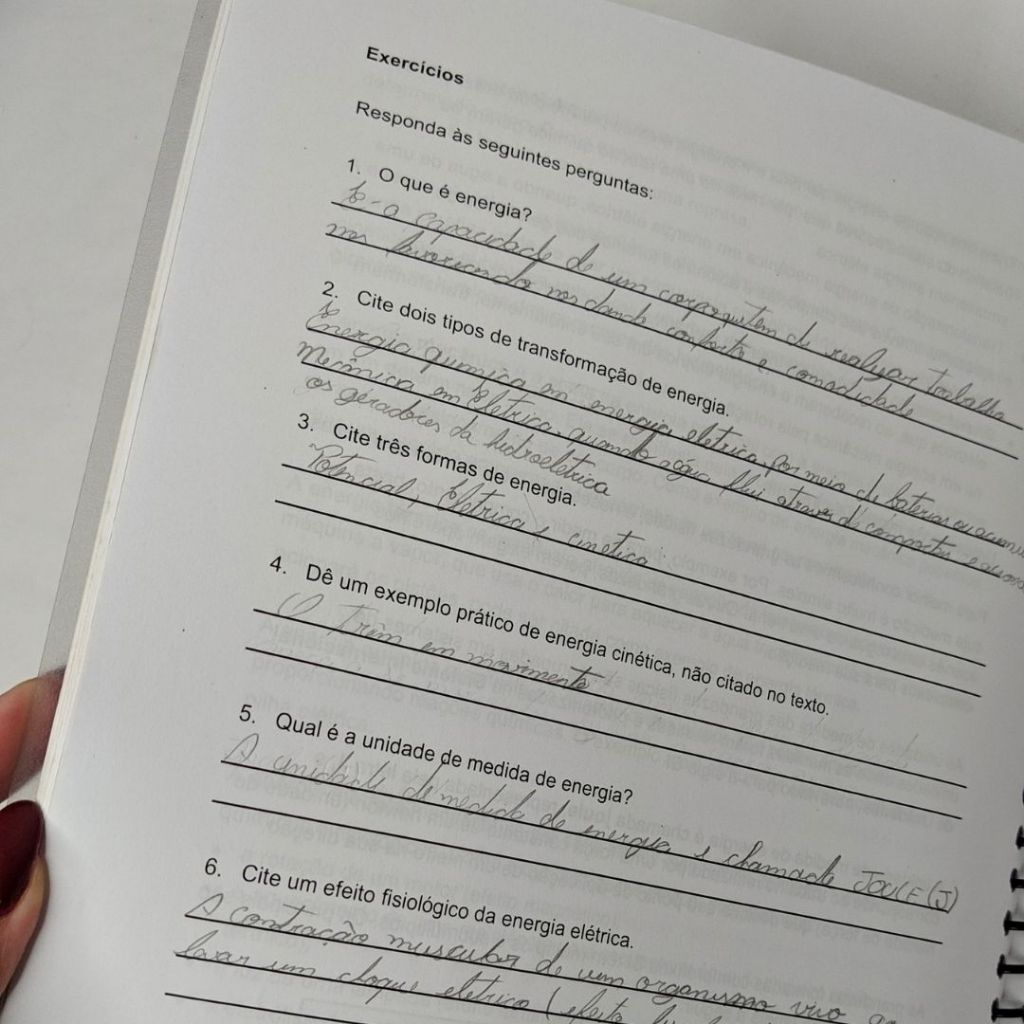 Exercícios
Responda às seguintes perguntas:
1. O que é energia?
a capacidade de um corpo que tem de realizar trabalho
nos favorecendo nos dando conforto e comodidade
2. Cite dois tipos de transformação de energia.
Energia química em energia eletrica, por meio de baterias ou
Mecânica em Eletrica, quando a água flui atraves de comportas e
os geradores da hidroeletrica
3. Cite três formas de energia.
Potencial, Eletrica e cinética
4. Dê um exemplo prático de energia cinética, não citado no texto.
O Trêm em movimento
5. Qual é a unidade de medida de energia?
A unidade de medida de energia e chamada JOULE (J)
6. Cite um efeito fisiológico da energia elétrica.
A contração muscular de um organismo vivo ao
levar um choque eletrico (efeito